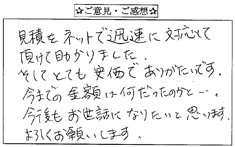 ☆ご意見・ご感想☆
見積をネットで迅速に対応して
頂けて助かりました。
そしてとても安価でありがたいです。
今までの金額は何だったのかと…。
今後もお世話になりたいと思います。
よろしくお願いします。